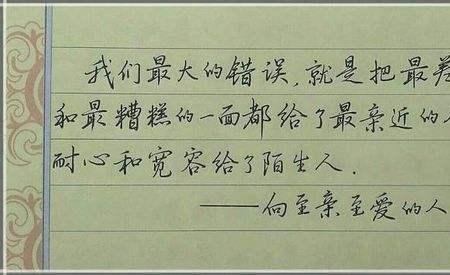 我们最大的错误,就是把最差
和最糟糕的一面都给了最亲近的
耐心和宽容给了陌生人.
——向至亲至爱的人